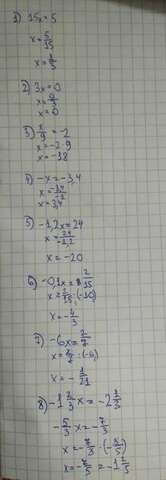 1) 15x = 5
x = 5/15
x = 1/3
2) 3x = 0
x = 0/3
x = 0
3) x/9 = -2
x = -2·9
x = -18
4) -x = -3,4
x = -3,4/-1
x = 3,4
5) -1,2x = 24
x = 24/-1,2
x = -20
6) -0,1x = 2/15
x = 2/15 · (-10)
x = -4/3
7) -6x =
x = · (-6)
x = - 1/21
8) -1 2/3 x = -2 1/3
-5/3 x = -7/3
x = -7/3 · (-3/5)
x = -7/5 = -1 2/5